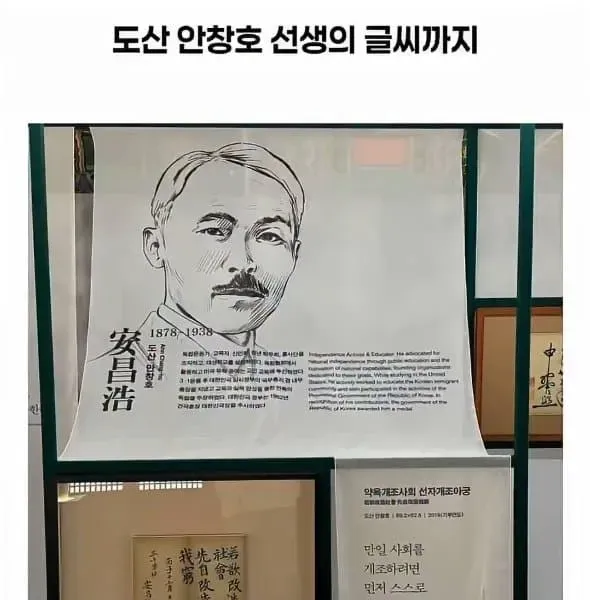 도산 안창호 선생의 글씨까지
1878/1938
安昌浩
도산 안창호
Ahn Chang-ho
독립운동가, 교육자. 신민회, 청년학우회, 흥사단을
조직하고, 대성학교를 설립하였다. 독립협회에서
활동하고 미국 유학
3·1운동 후 대한민국 임시정부의 내무총리 겸
독립을 주장하였다. 대한민국 정부는 1962년
건국훈장 대한민국장을 추서하였다.
Independence Activist & Educator. He advocated for
national independence through public education and the
formation of national capabilities, founding organizations
dedicated to these goals. While studying in the United
States, he actively worked to educate the Korean immigrant
community and later participated in the activities of the
Provisional Government of the Republic of Korea. In
recognition of his contributions, the government of the
Republic of Korea awarded him a medal.
약욕개조사회 선자개조아궁
若欲改造社會 先自改造我窮
도산 안창호
만일 사회를
개조하려면
먼저 스스로
若欲改造
社會
先自改造
我窮